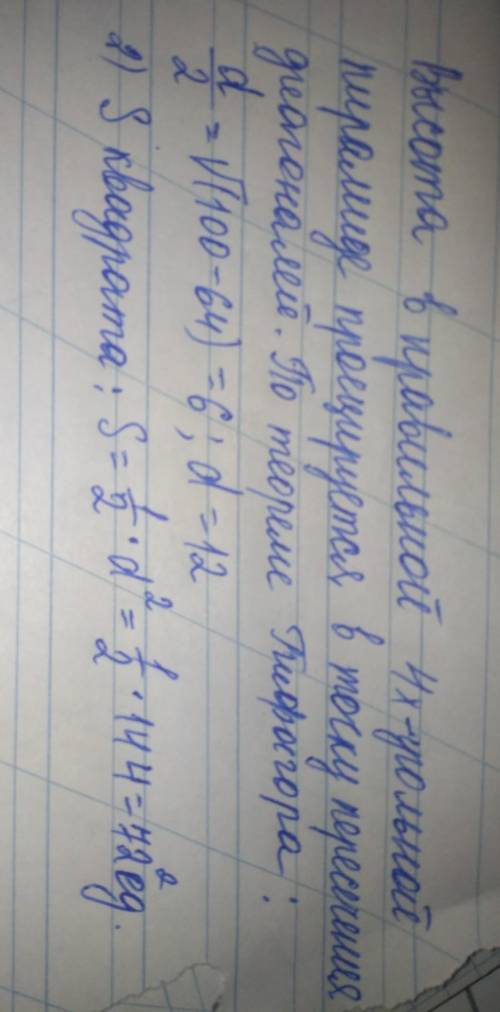 Высота в правильной 4х-угольной
пирамиде проецируется в точку пересечения
диагоналей. По теореме Пифагора:
d/2 = √(100-64) = 6; d = 12
2) S квадрата: S = 1/2 · d² = 1/2 · 144 = 72 ед.²